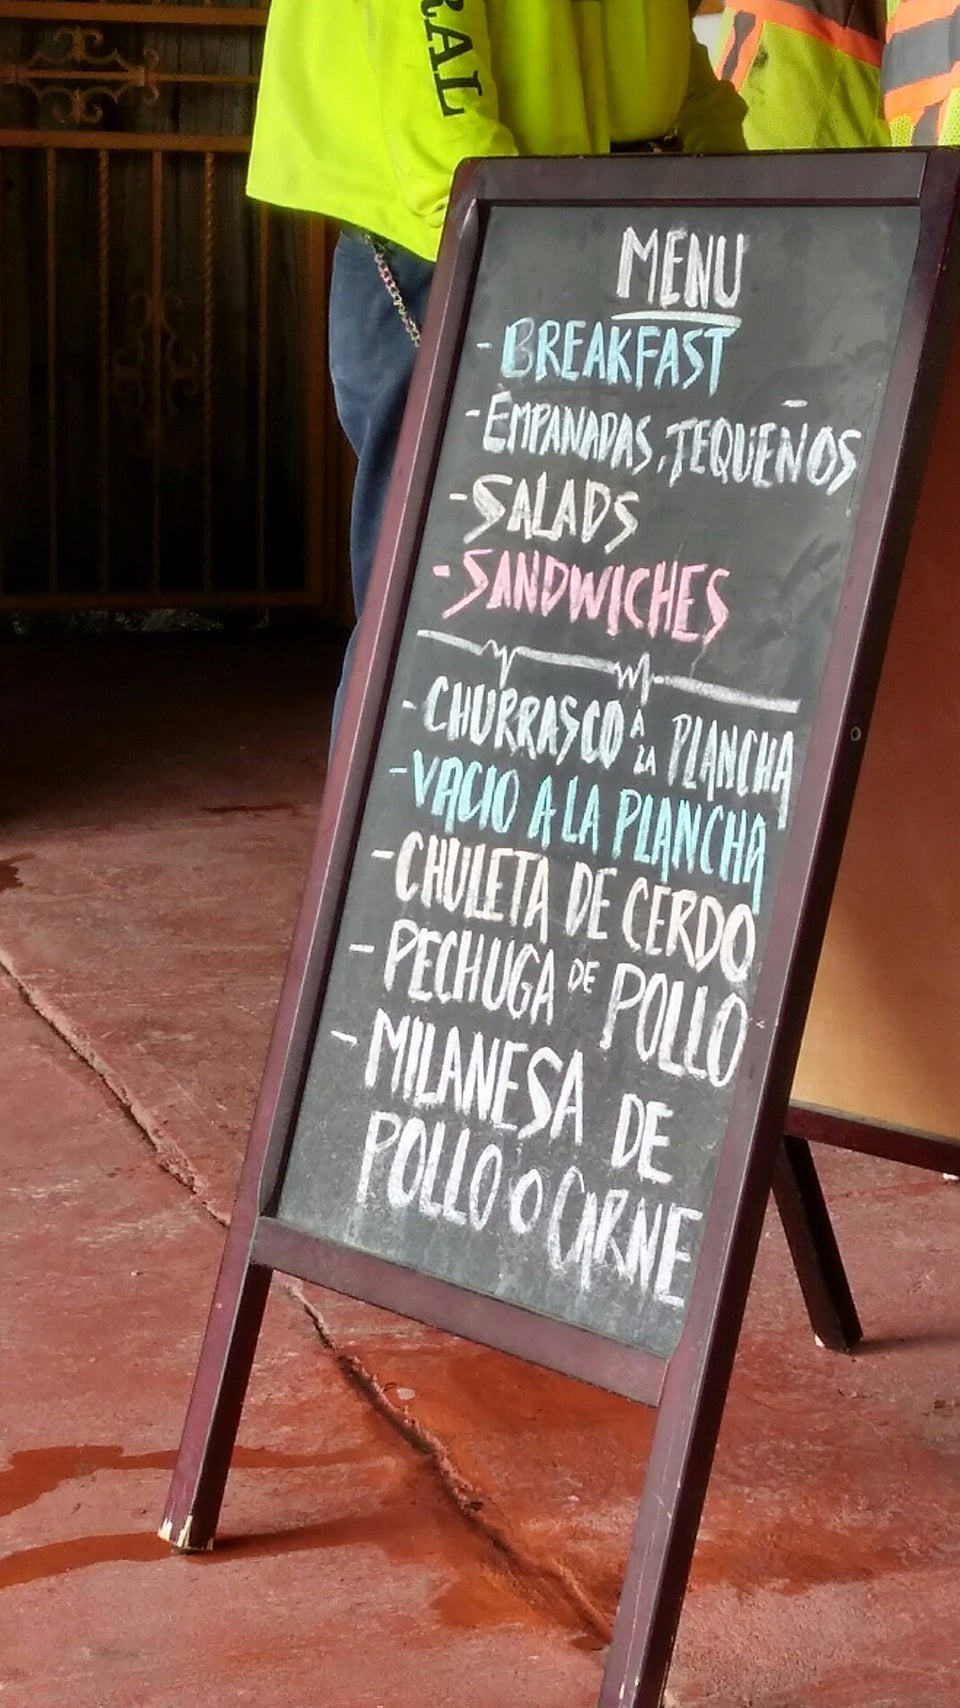 RAL
MENU
- BREAKFAST
- EMPANADAS, TEQUEÑOS
- SALADS
- SANDWICHES
- CHURRASCO A LA PLANCHA
- VACIO A LA PLANCHA
- CHULETA DE CERDO
- PECHUGA DE POLLO
- MILANESA DE
POLLO O CARNE